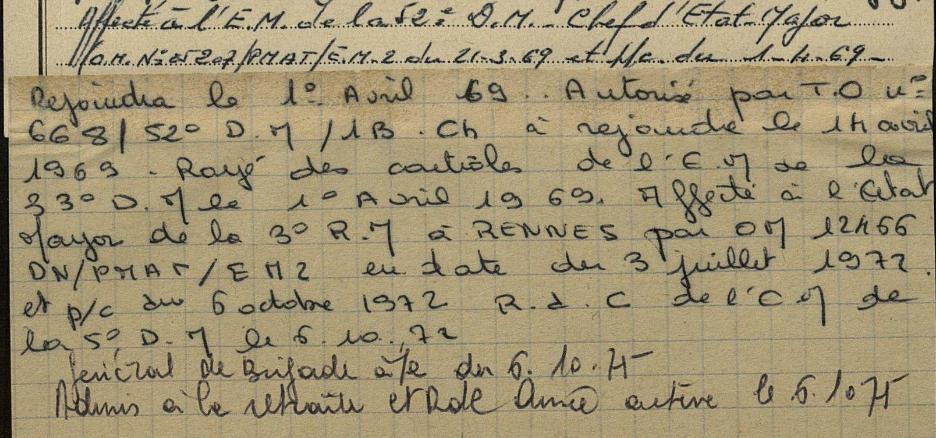 Affecté à l'E.M. de la 52e D.M. - Chef d'Etat-Major
O.M. N° 5207/PMAT/E.M.2 du 21-3-69 et p/c. du 1-4-69-
Rejoindra le 1° Avril 69. Autorisé par T.O n°
668/52° D.M/1B. Ch à rejoindre le 14 avril
1969. Rayé des contrôles de l'E.M de la
33° D.M le 1° Avril 1969. Affecté à l'Etat
Mayor de la 3° R.M à RENNES par OM 12466
DN/PMAT/EM2 en date du 3 juillet 1972.
et p/c du 6 octobre 1972 R.d.C de l'E.M de
la 5° D.M le 6.10.72
Général de Brigade à/c du 6.10.75
Admis à la retraite et Armée active le 6.10.75